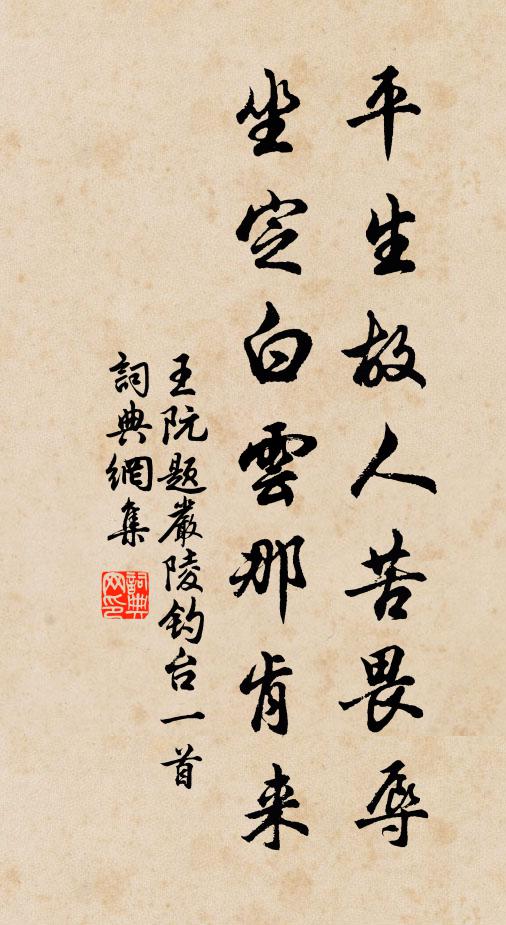 平生故人苦畏辱
坐定白雲那肯来
王阮题嚴陵钓台一首
詞典網集
詞典
网印